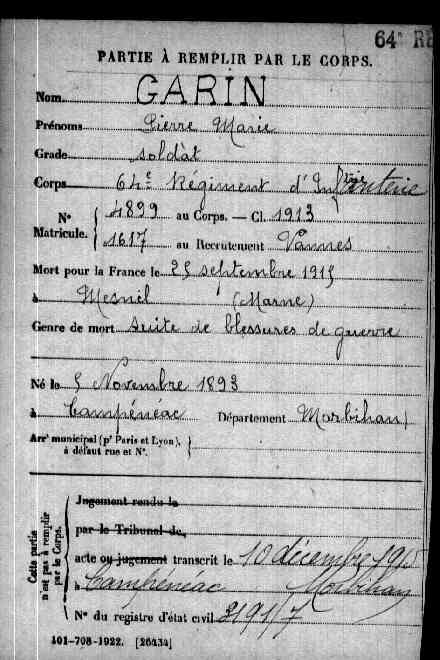 64e RE
PARTIE À REMPLIR PAR LE CORPS.
Nom GARIN
Prénoms Pierre Marie
Grade soldat
Corps 64e Régiment d'Infanterie
N° Matricule. 4899 au Corps. — Cl. 1913
1617 au Recrutement Vannes
Mort pour la France le 25 septembre 1915
à Mesnil (Marne)
Genre de mort suite de blessures de guerre
Né le 5 Novembre 1893
à Campénéac Département Morbihan
Arrt municipal (pr Paris et Lyon),
à défaut rue et N°.
Cette partie n'est pas à remplir par le Corps.
Jugement rendu le
par le Tribunal de
acte ou jugement transcrit le 10 décembre 1915
à Campénéac Morbihan
N° du registre d'état civil
401-708-1922. [26434]